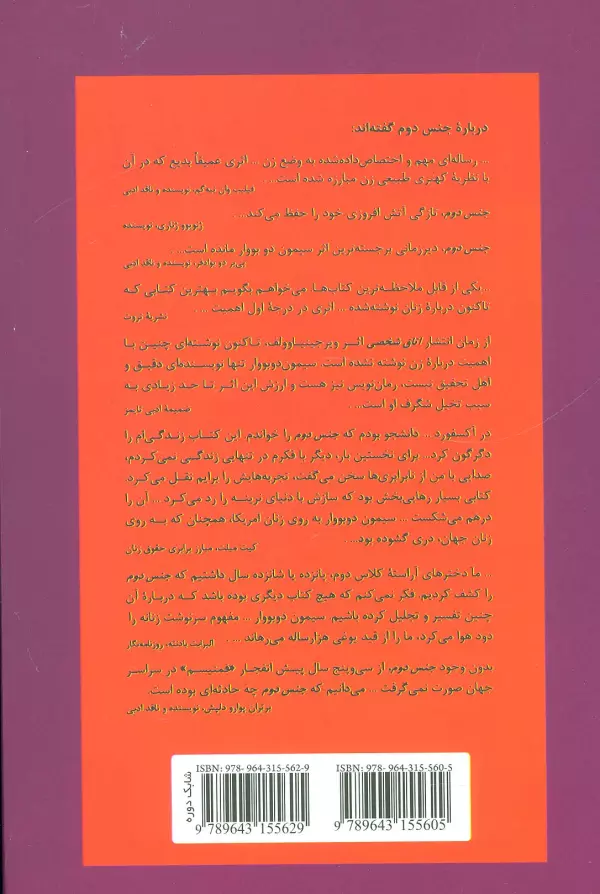 دربارهٔ جنس دوم گفته‌اند:
... رساله‌ای مهم و اختصاص‌داده‌شده به وضع زن ... اثری عمیقاً بدیع که در آن
با نظریهٔ کهتری طبیعی زن مبارزه شده است... .
فیلیپ وان تیه‌گم، نویسنده و ناقد ادبی
جنس دوم، تازگی آتش افروزی خود را حفظ می‌کند...
ژنویوو ژناری، نویسنده
جنس دوم، دیرزمانی برجسته‌ترین اثر سیمون دو بووار مانده است...
پی‌یر دو بوادفر، نویسنده و ناقد ادبی
...یکی از قابل ملاحظه‌ترین کتاب‌ها. می‌خواهم بگویم بهترین کتابی که
تاکنون دربارهٔ زنان نوشته‌شده ... اثری در درجهٔ اول اهمیت ... .
نشریهٔ تروث
از زمان انتشار اتاق شخصی اثر ویرجینیاوولف، تاکنون نوشته‌ای چنین با
اهمیت دربارهٔ زن نوشته نشده است. سیمون‌دوبووار تنها نویسنده‌ای دقیق و
اهل تحقیق نیست، رمان‌نویس نیز هست و ارزش این اثر تا حد زیادی به
سبب تخیل شگرف او است... .
ضمیمهٔ ادبی تایمز
در آکسفورد ... دانشجو بودم که جنس دوم را خواندم این کتاب زندگی‌ام را
دگرگون کرد... برای نخستین بار، دیگر با فکرم در تنهایی زندگی نمی‌کردم،
صدایی با من از نابرابری‌ها سخن می‌گفت، تجربه‌هایش را برایم نقل می‌کرد.
کتابی بسیار رهایی‌بخش بود که سازش با دنیای نرینه را رد می‌کرد ... آن را
درهم می‌شکست ... سیمون دوبووار به روی زنان امریکا، همچنان که به روی
زنان جهان، دری گشوده بود...
کیت میلت، مبارز برابری حقوق زنان
... ما دخترهای آراستهٔ کلاس دوم، پانزده یا شانزده سال داشتیم که جنس دوم
را کشف کردیم. فکر نمی‌کنم که هیچ کتاب دیگری بوده باشد که دربارهٔ آن
چنین تفسیر و تجلیل کرده باشیم. سیمون دوبووار ... مفهوم سرنوشت زنانه را
دود هوا می‌کرد، ما را از قید یوغی هزارساله می‌رهاند ... .
الیزابت بادنتر، روزنامه‌نگار
بدون وجود جنس دوم، از سی‌وپنج سال پیش انفجار «فمنیسم» در سراسر
جهان صورت نمی‌گرفت ... می‌دانیم که جنس دوم چه حادثه‌ای بوده است.
برتران پوارو دلپش، نویسنده و ناقد ادبی
شابک دوره
ISBN: 978- 964-315-562-9
9 789643 155629
ISBN: 978- 964-315-560-5
9 789643 155605